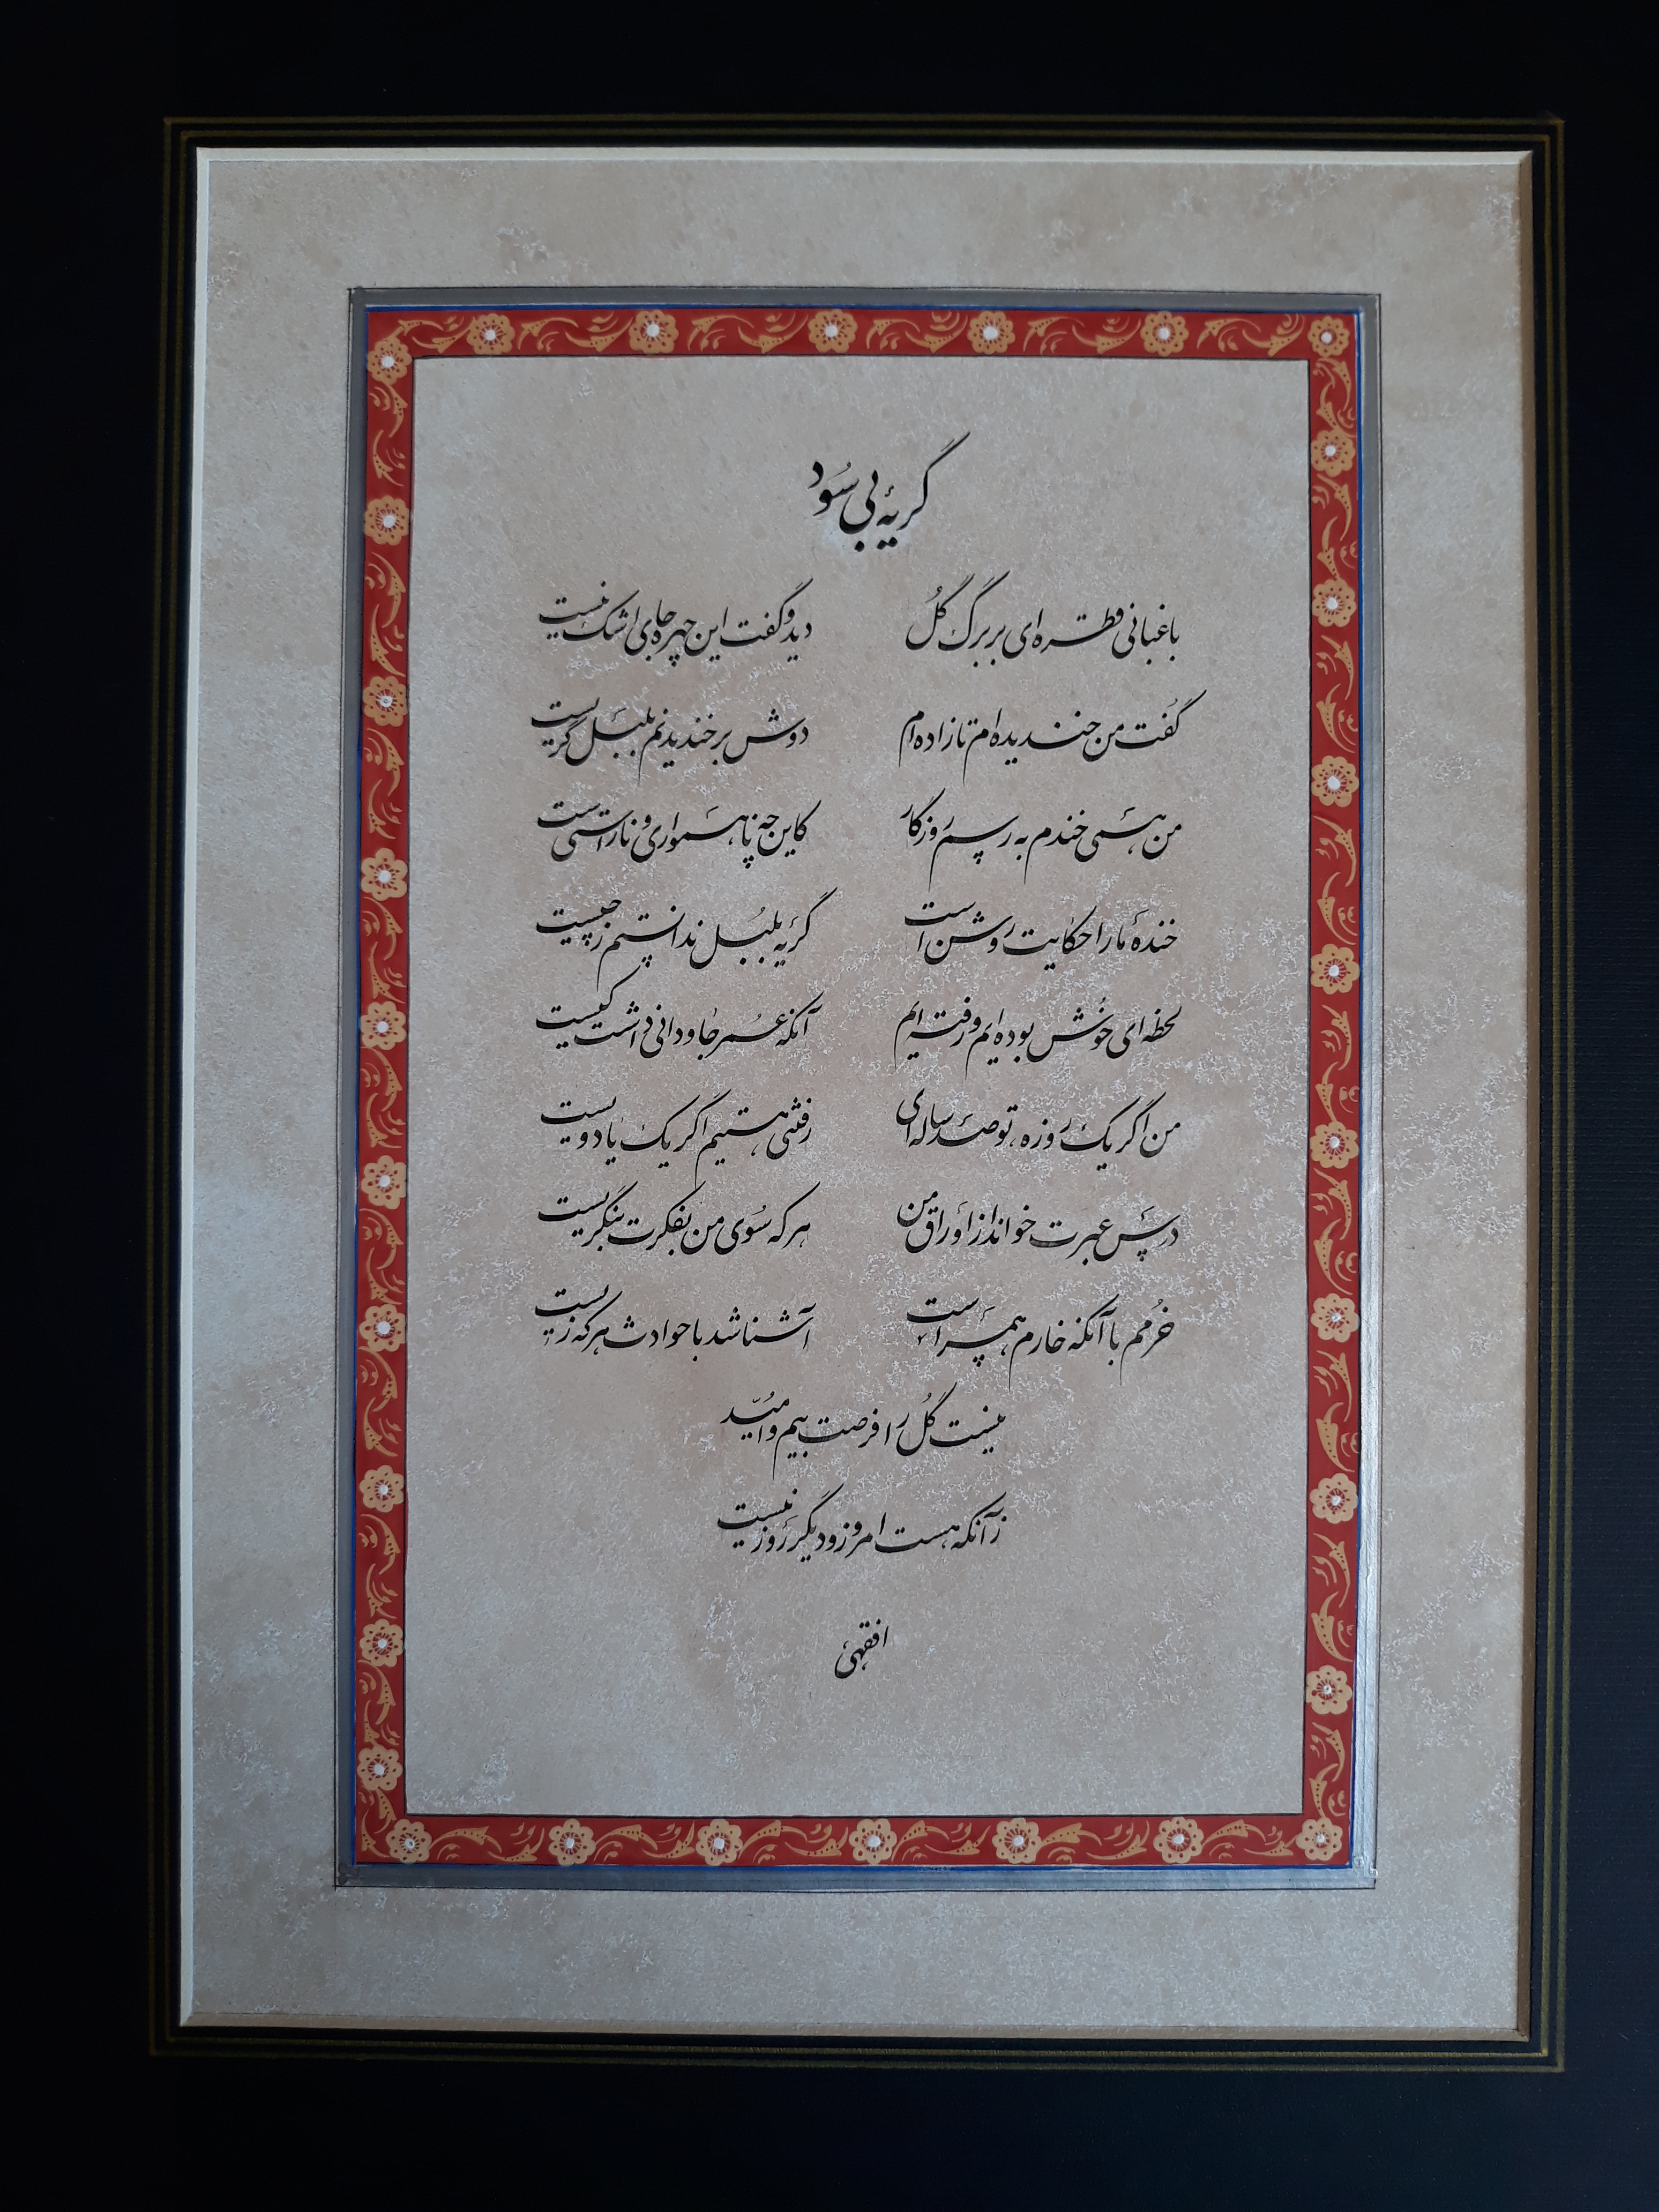 گریهٔ بی سُود
باغبانی قطره ای بر برگ گُل دید و گفت این چهره جای اشک نیست
گُفت من خندیده ام تا زاده ام دوش بر خندیدنم بلبل گریست
من همی خندم به رسم روزگار کاین چه ناهمواری و ناراستی است
خندهٔ ما را حکایت روشن است گریهٔ بلبُل ندانستم ز چیست
لحظه ای خُوش بوده ایم و رفته ایم آنکه عُمر جاودانی داشت کیست
من اگر یک روزه، تو صد ساله ای رفتنی هستیم اگر یک یا دویست
درس عبرت خواند از اوراق من هر که سُوی من بفکرت بنگریست
خُرمم با آنکه خارم همسر است آشنا شد با حوادث هر که زیست
نیست گُل را فرصت بیم و اُمیّد
زآنکه هست امروز و دیگر روز نیست
افقهی